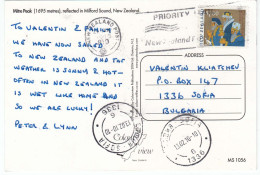 Mitre Peak (1695 metres), reflected in Milford Sound, New Zealand.
TO VALENTIN & FAMILY
WE HAVE NOW SAILED
TO NEW ZEALAND AND THE
WEATHER IS SUNNY & HOT-
OFTEN IN NEW ZEALAND IT
IS WET LIKE HOME AND
SO WE ARE LUCKY!
PETER & LYNN
NEW ZEALAND POST
PRIORITY
New Zealand
ADDRESS
VALENTIN KLIATCHEV
P.O. BOX 147
1336 SOFIA
BULGARIA
1336
view
MS 1056